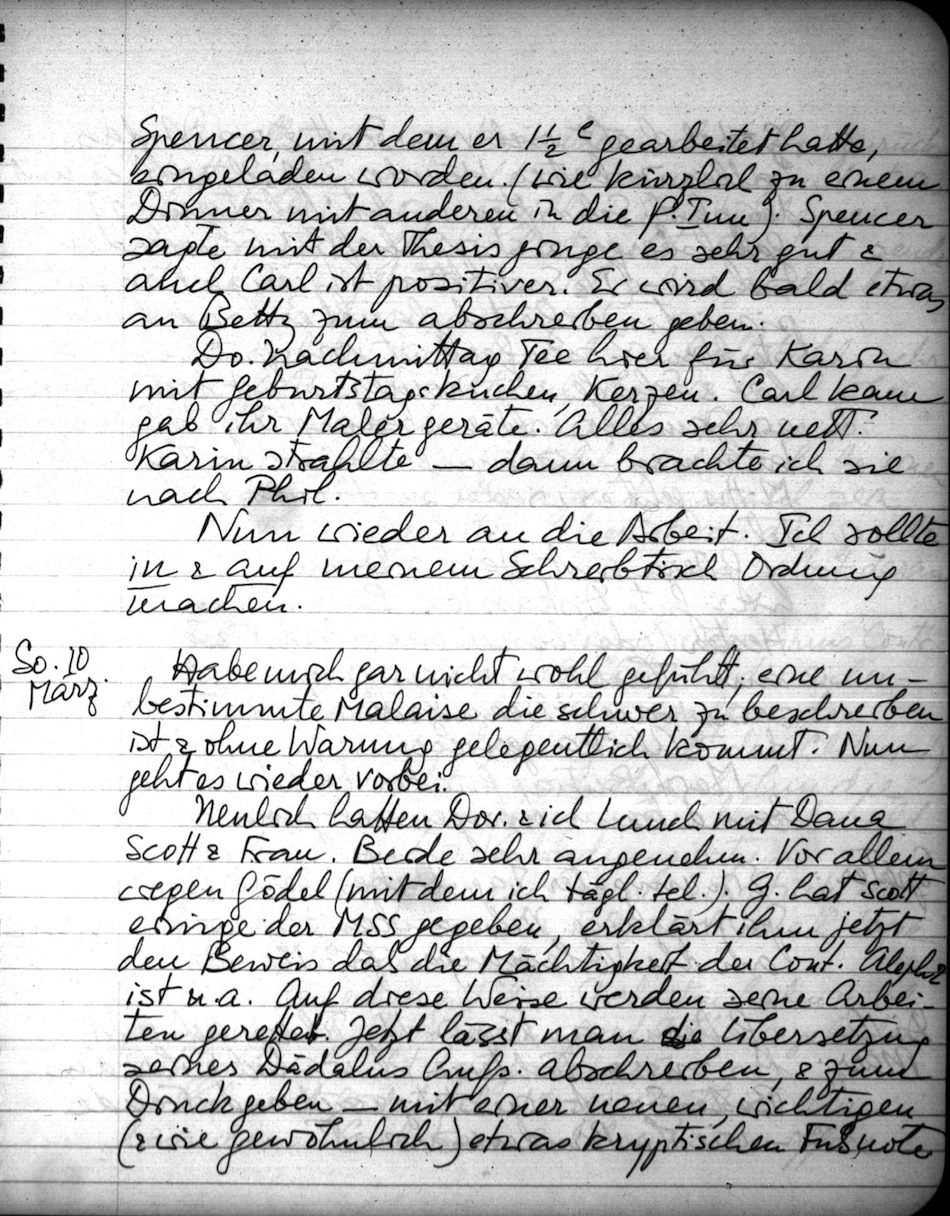 Spencer, mit dem er 1½ gearbeitet hatte,
eingeladen worden. (wie kürzlich zu einem
Dinner mit anderen in die P. Inn). Spencer
sagte mit der Thesis ginge es sehr gut &
auch Carl ist positiver. Er wird bald etwas
an Betty zum abschreiben geben.
Do. Nachmittag Tee hier für Karin
mit Geburtstagskuchen, Kerzen. Carl kam
gab ihr Malergeräte. Alles sehr nett.
Karin strahlte — dann brachte ich sie
nach Phil.
Nun wieder an die Arbeit. Ich sollte
in & auf meinem Schreibtisch Ordnung
machen.
So. 10
März.
Habe mich gar nicht wohl gefühlt, eine un-
bestimmte Malaise die schwer zu beschreiben
ist & ohne Warnung gelegentlich kommt. Nun
geht es wieder vorbei.
Neulich hatten Dor. & ich Lunch mit Dana
Scott & Frau. Beide sehr angenehm. Vor allem
wegen Gödel (mit dem ich tägl. tel.). G. hat Scott
einige der MSS gegeben, erklärt ihm jetzt
den Beweis daß die Mächtigkeit der Cont. Aleph2
ist u.a. Auf diese Weise werden seine Arbei-
ten gerettet. Jetzt lässt man die Übersetzung
seines Dädalus Aufs. abschreiben, & zum
Druck geben — mit einer neuen, wichtigen
(& wie gewöhnlich) etwas kryptischen Fußnote